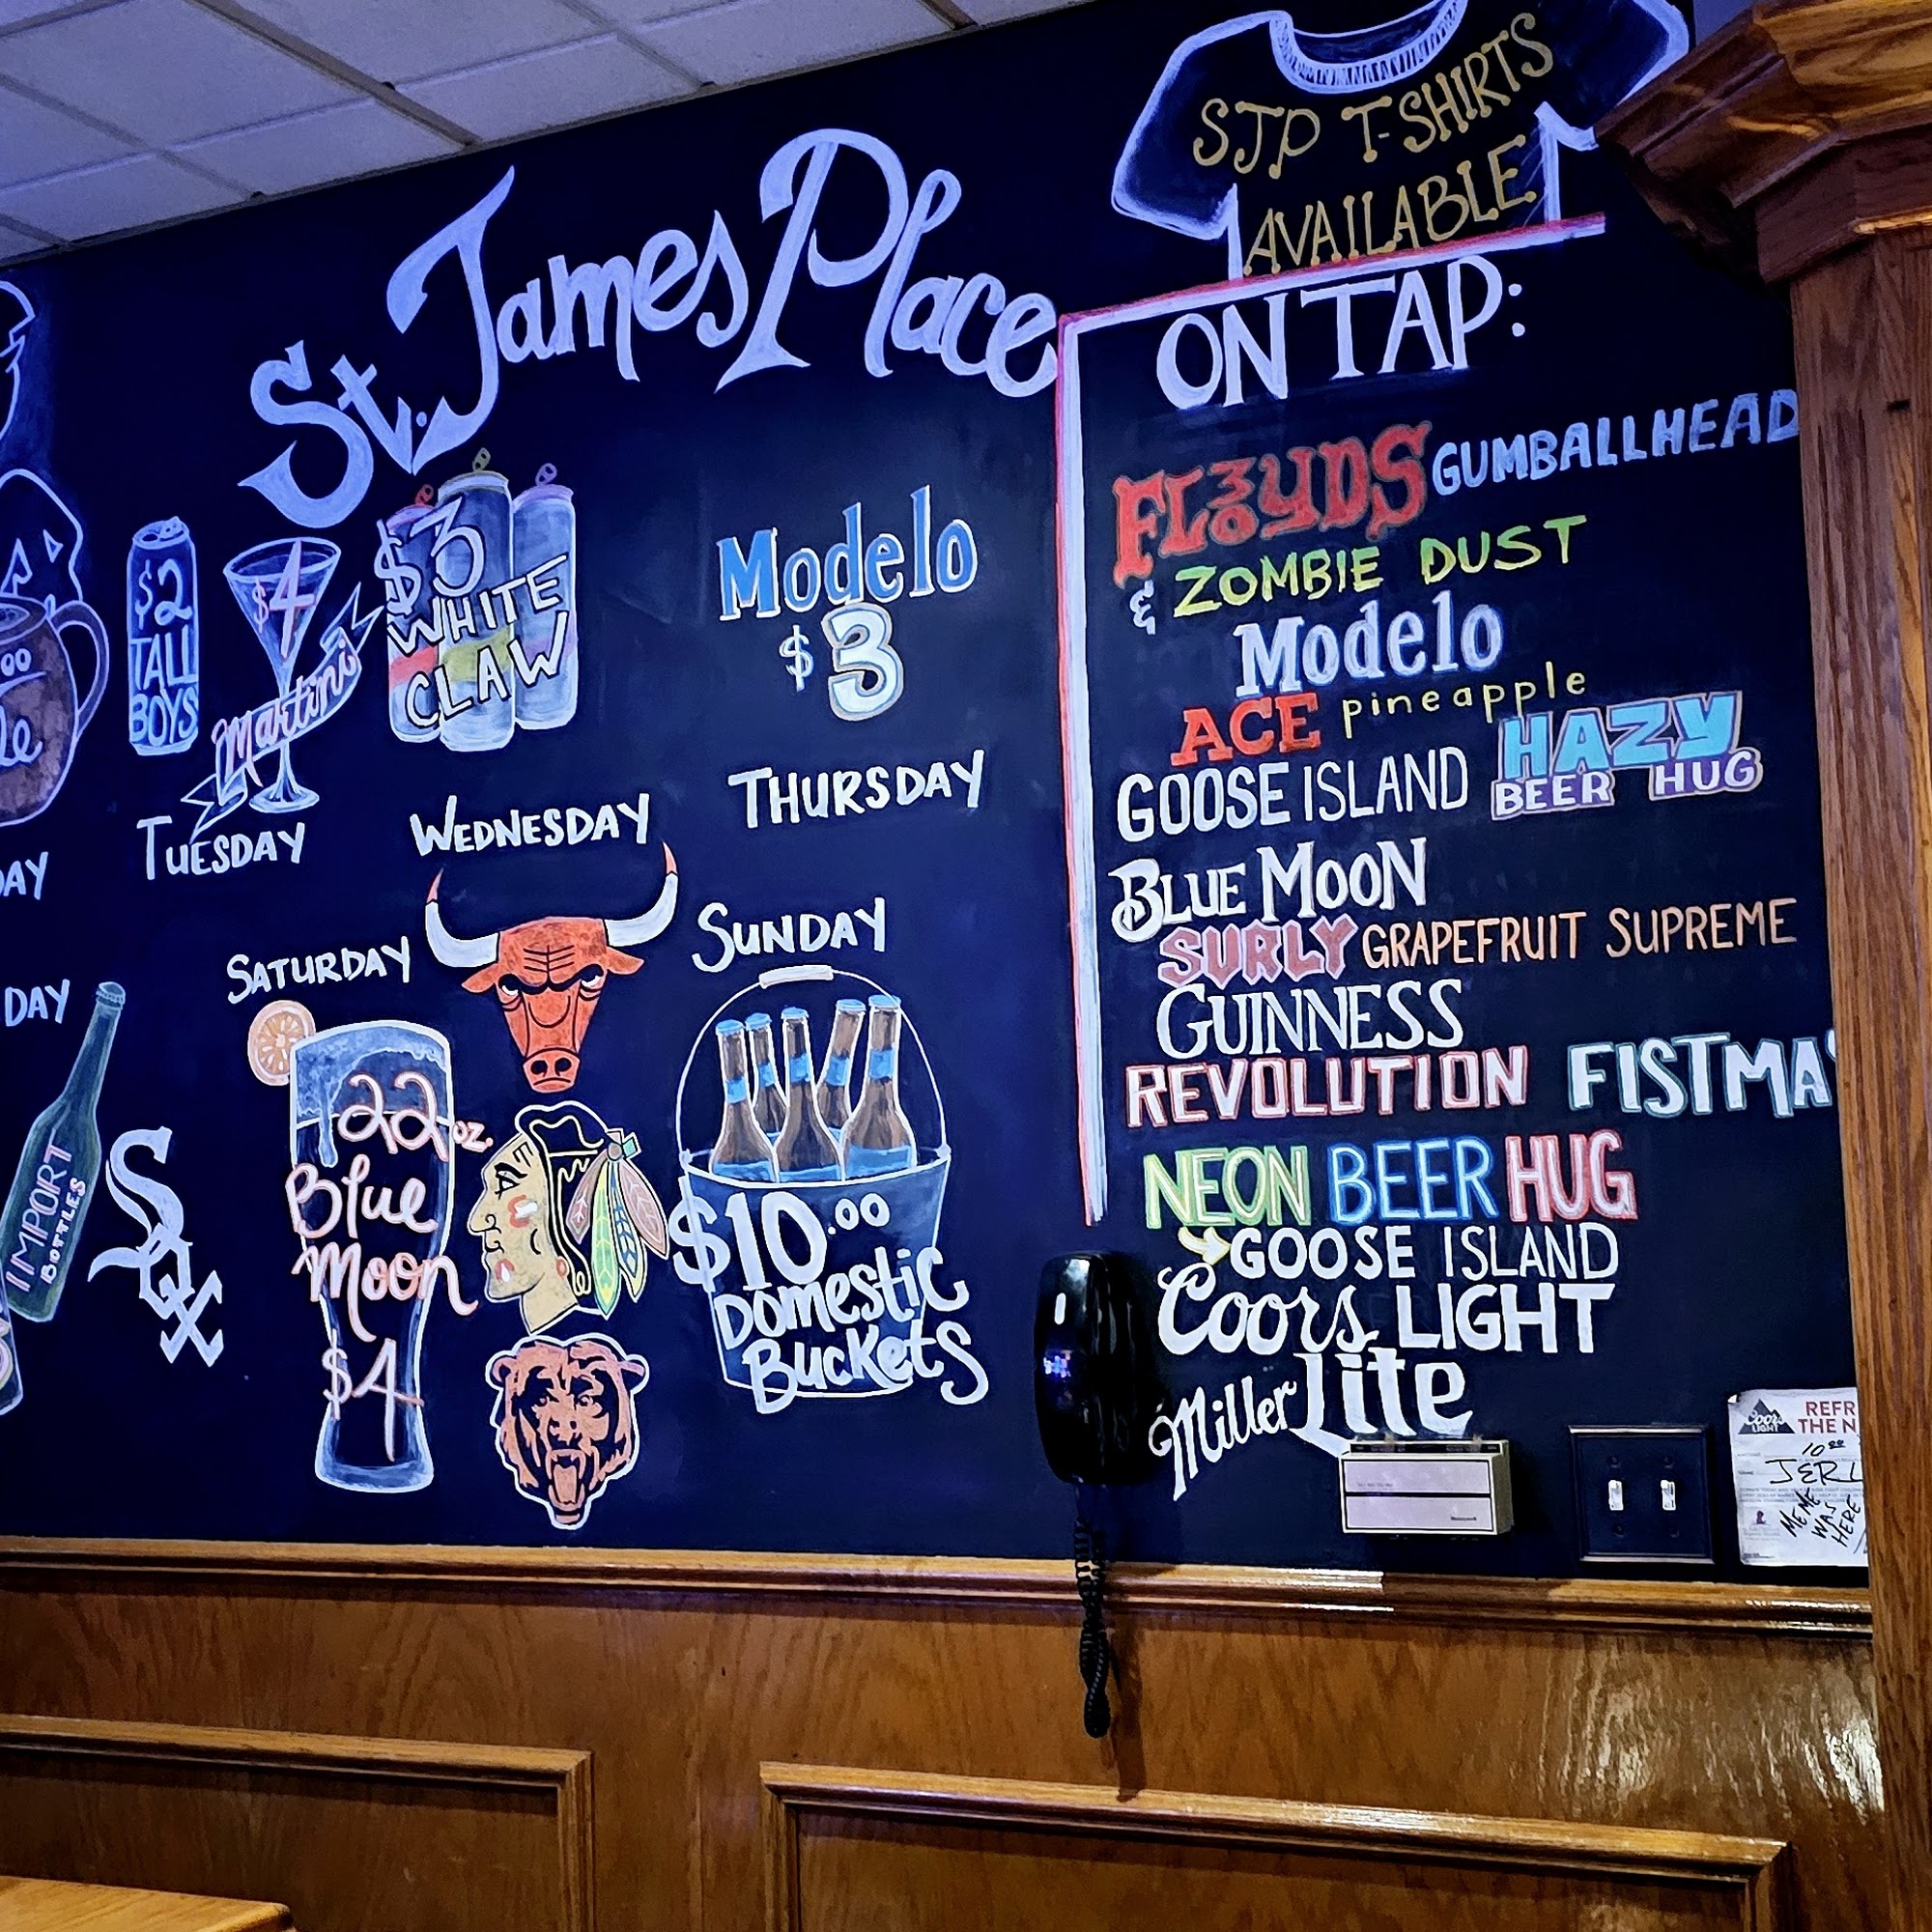 St. James Place
STP T-SHIRTS
AVAILABLE
$2
TALL
BOYS
$4
Martini
TUESDAY
$3
WHITE
CLAW
WEDNESDAY
Modelo
$3
THURSDAY
DAY
IMPORT
BOTTLES
Sox
SATURDAY
22 oz.
Blue
Moon
$4
SUNDAY
$10.00
Domestic
Buckets
ON TAP:
FLOYDS GUMBALLHEAD
& ZOMBIE DUST
Modelo
ACE pineapple
GOOSE ISLAND HAZY
BEER HUG
BLUE MOON
SURLY GRAPEFRUIT SUPREME
GUINNESS
REVOLUTION FISTMA
NEON BEER HUG
GOOSE ISLAND
Coors LIGHT
Miller Lite
Honeywell
Coors
LIGHT
REFR
THE N
10⁰⁰
MEME
WAS
HERE